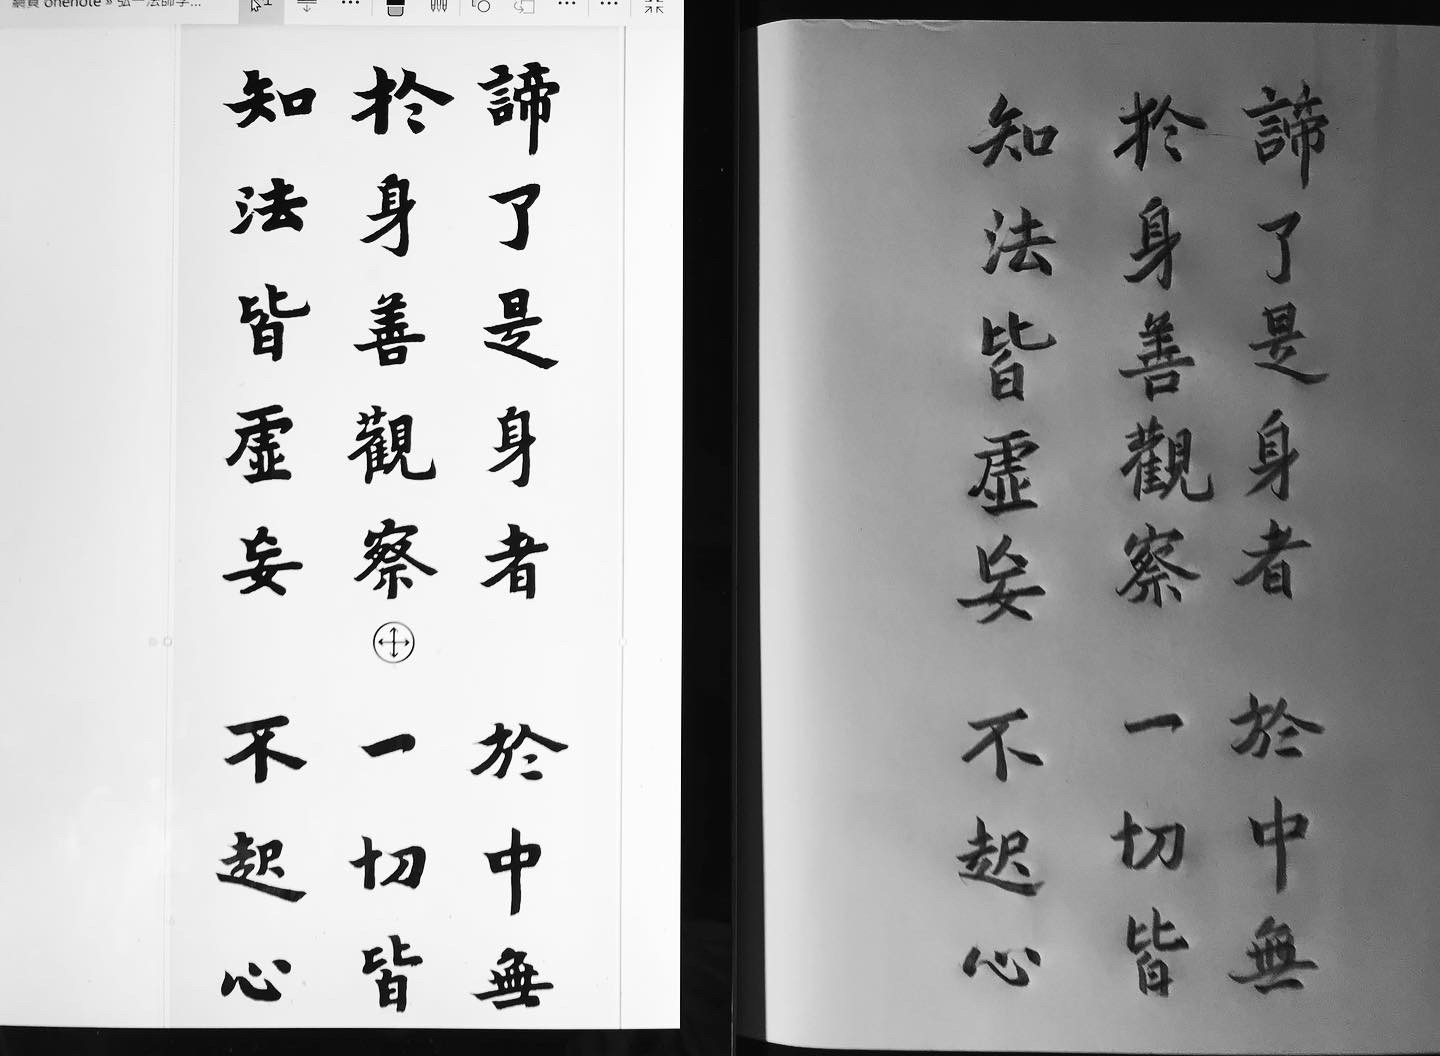 網頁 onenote » 弘一法師字...
諦了是身者 於中無
於身善觀察 一切皆
知法皆虛妄 不起心
諦了是身者 於中無
於身善觀察 一切皆
知法皆虛妄 不起心